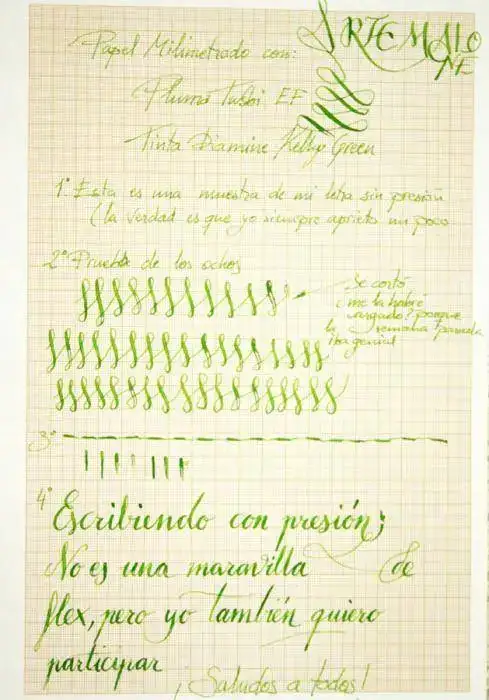 ARTEMALO
NE
Papel Milimetrado con:
Pluma Tubi EF
Tinta Diamine Kelly Green
1º Esta es una muestra de mi letra sin presión
(la verdad es que yo siempre aprieto un poco
2º Prueba de los ochos
Se cortó
¿me la habré
cargado? porque
la semana pasada
iba genial
3º
4º Escribiendo con presión;
No es una maravilla de
flex, pero yo también quiero
participar
¡Saludos a todos!